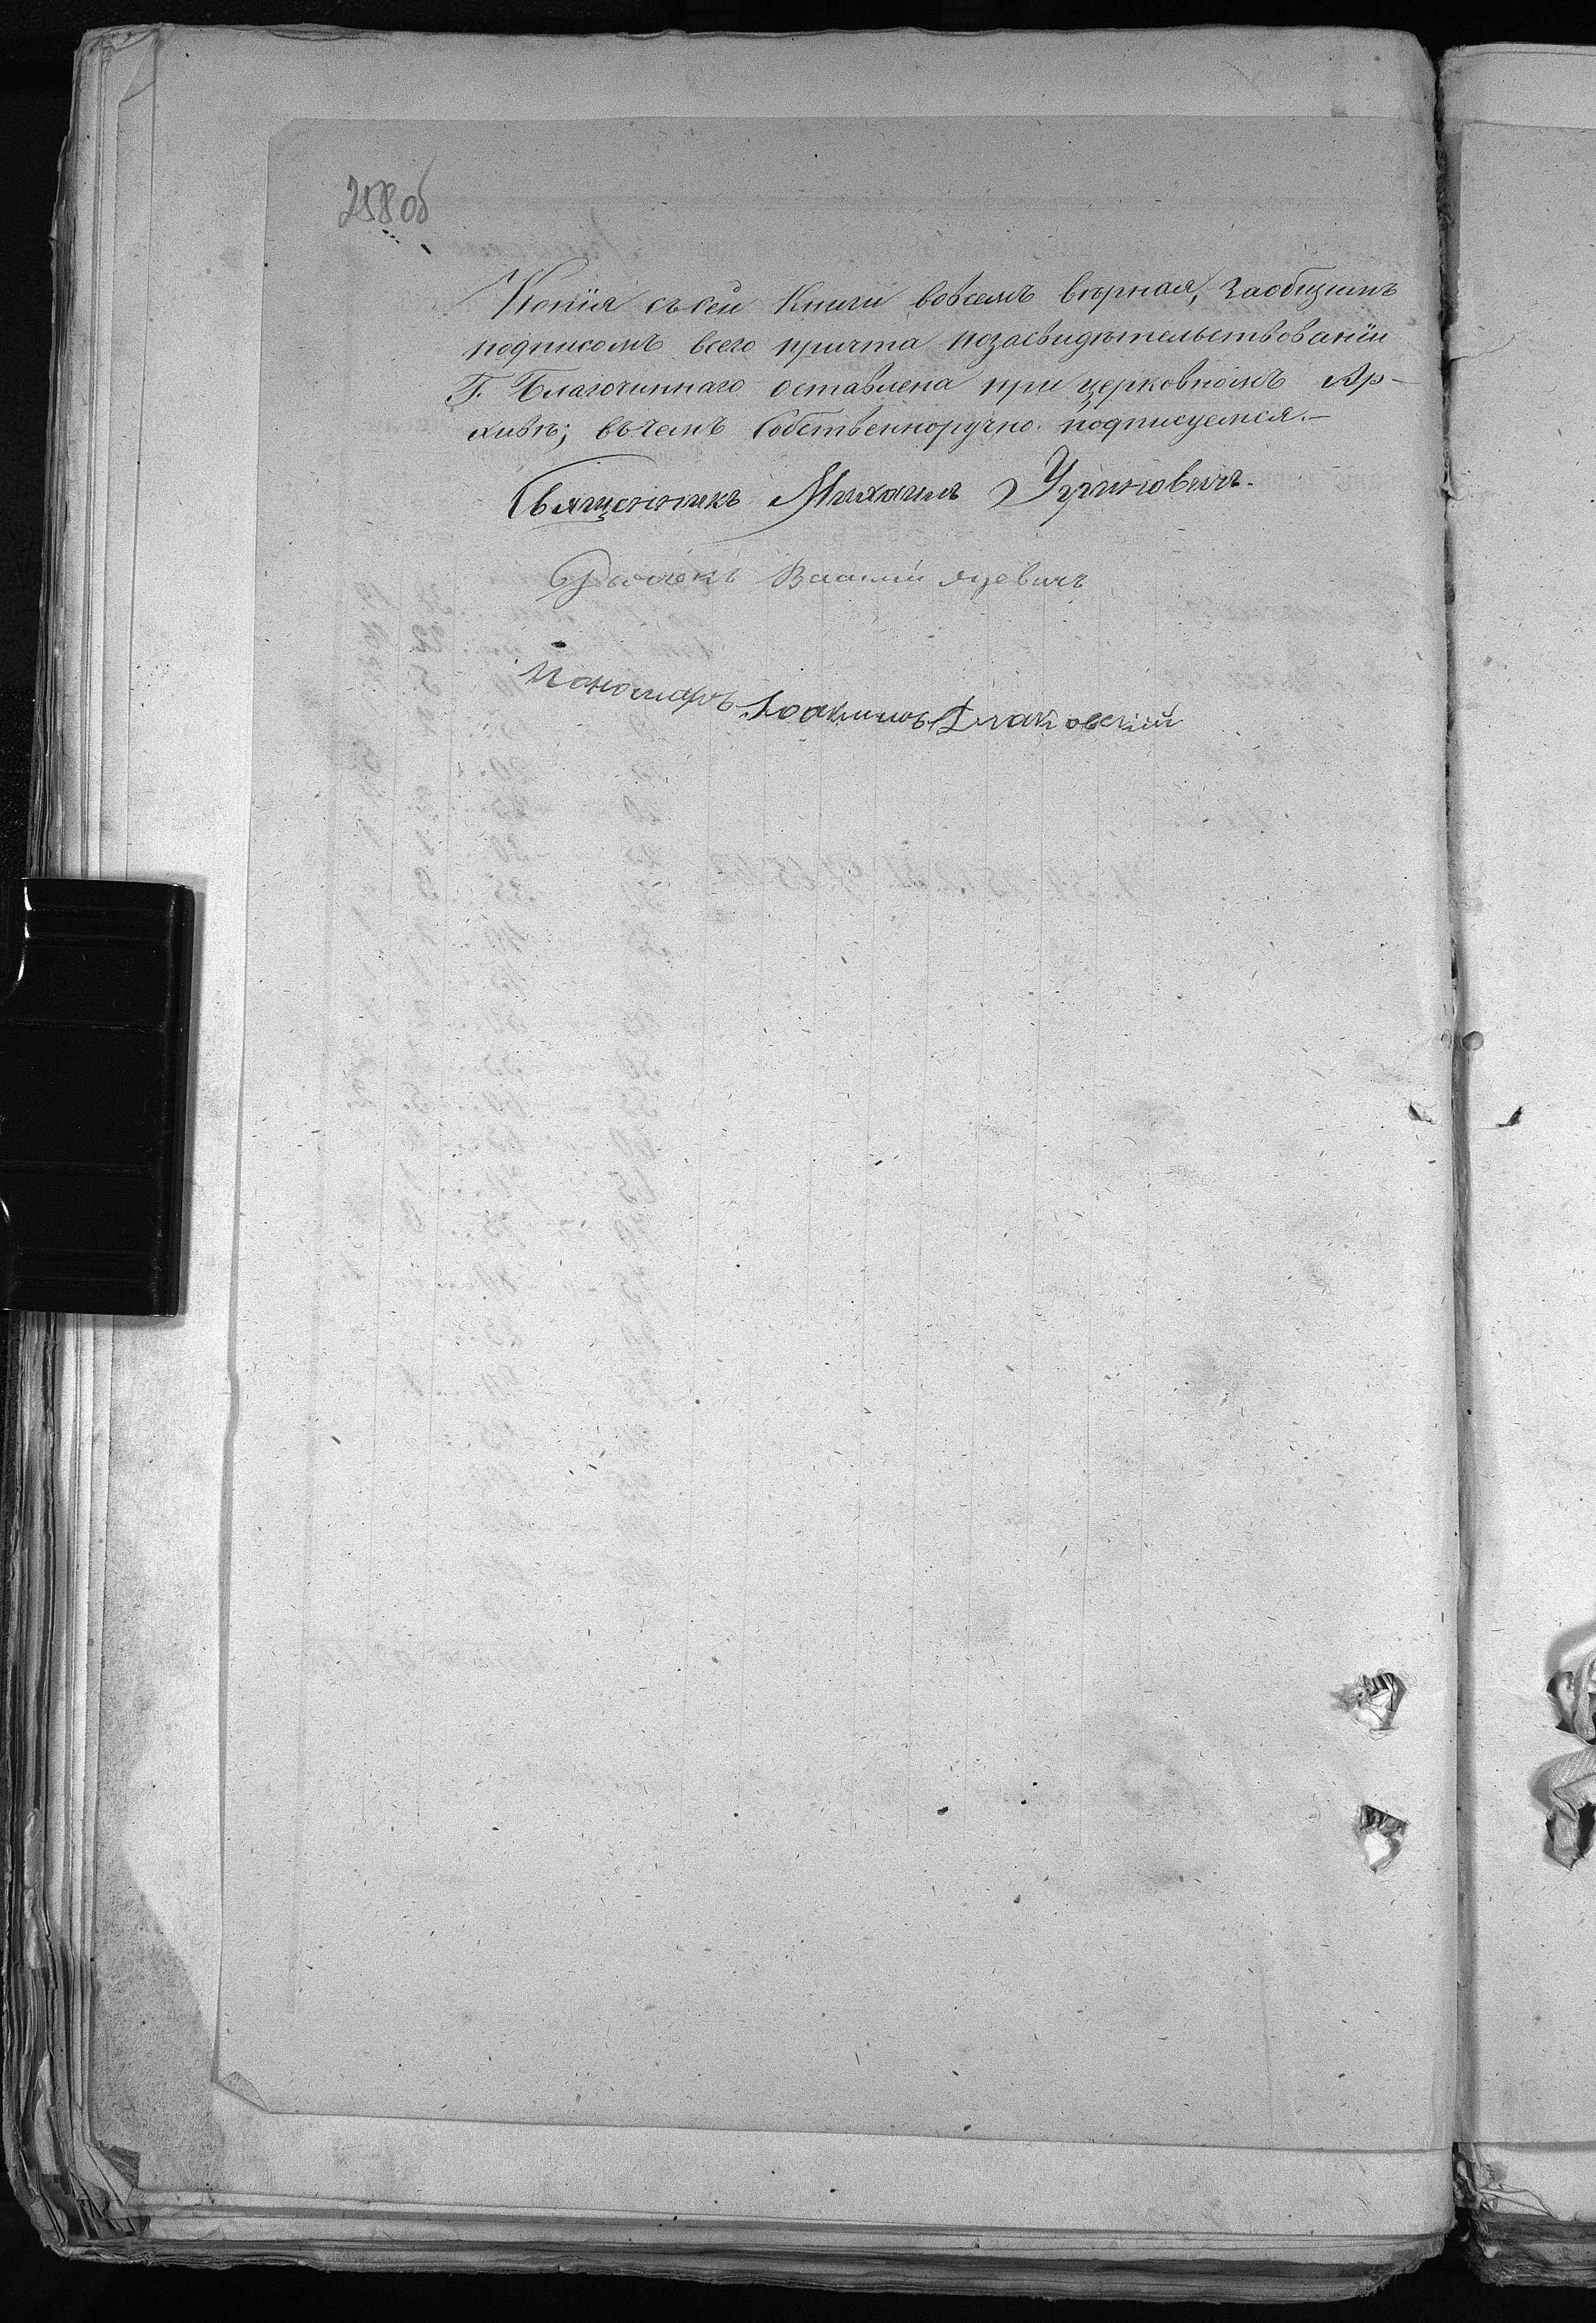 258 об
Копія съ сей Книги вовсемъ вѣрная, за общимъ
подписомъ всего причта позасвидѣтельствованіи
Г. Благочиннаго оставлена при церковномъ Ар-
хивѣ; въ чемъ Собственноручно подписуемся.-
Священникъ Михаилъ
Дьячекъ Василій Яцевичъ
Пономаръ Іоакимъ